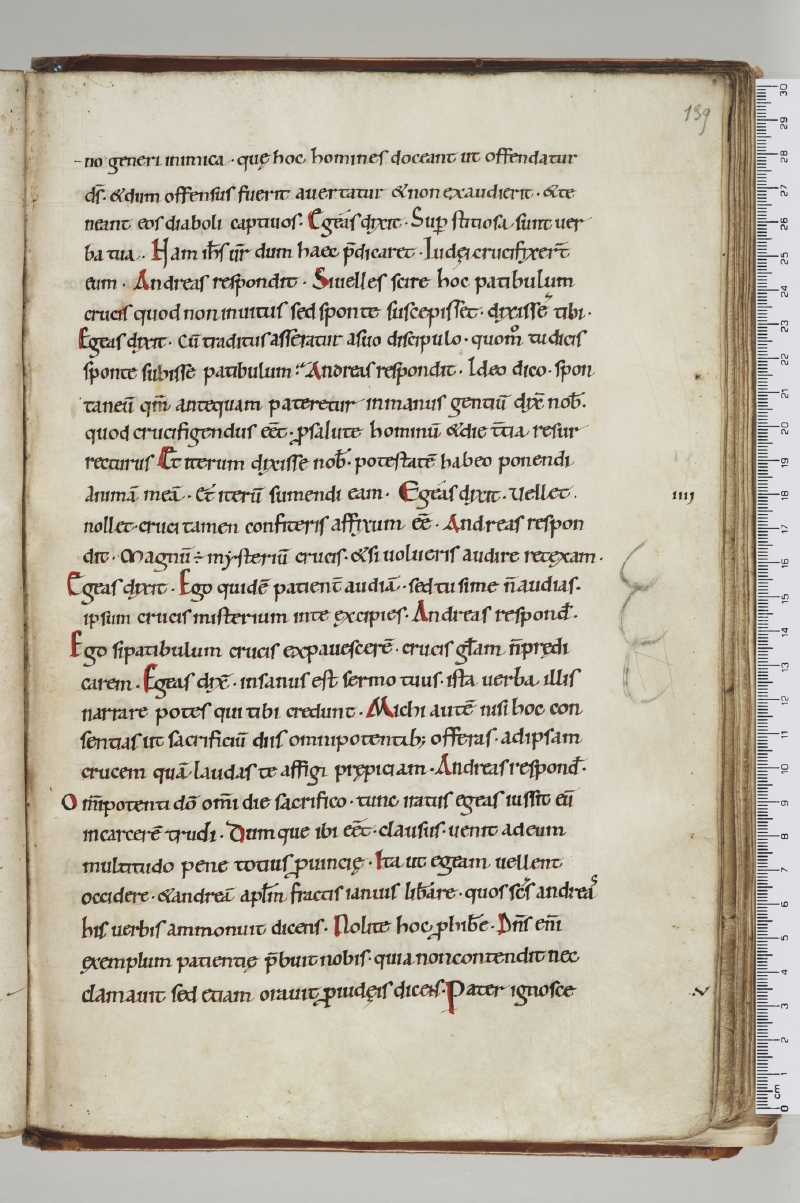 139
no generi inimica · quę hoc homines doceant ut offendatur
ds̄ · &dum offensus fuerit auertatur & non exaudierit · & te
neant eos diaboli captiuos · Egeas dixit · Sup̱stitiosa sunt uer
ba tua · Nam ih̄s ur̄ dum haec p̄dicaret · Iudęi crucifixer̄t
eum · Andreas respondit · Si uelles scire hoc patibulum
crucis quod non inuitus sed sponte suscepisset · dixisse tibi ·
Egeas dixit · Cū traditus asseratur a suo discipulo · quom̊ tu dicis
sponte subisse patibulum · Andreas respondit · Ideo dico · spon
taneū qm̄ antequam pateretur in manus gentiū dix̄ nob̄ ·
quod crucifigendus eēt · ꝓ salute hominū & die t̄tia resur
recturus Et iterum dixisse nob̄ · potestatē habeo ponendi
animā meā · et iterū sumendi eam · Egeas dixit · Vellet ·
nollet · cruci tamen confiteris affixum eē · Andreas respon
dit · Magnū ÷ mysteriū crucis · & si uolueris audire retexam ·
Egeas dixit · Ego quidē patient̄ audiā · sed tu si me n̄ audias ·
ipsum crucis misterium in te excipies · Andreas respond̄ ·
Ego si patibulum crucis expauescerē · crucis gl̄am n̄ prędi
carem · Egeas dix̄ · insanus est sermo tuus · ista uerba illis
narrare potes qui tibi credunt · Michi autē nisi hoc con
sentias ut sacrificiū diis omnipotentib; offeras · ad ipsam
crucem quā laudas te affigi prępiciam · Andreas respond̄ ·
Om̄ipotenti dō om̄i die sacrifico · tunc iratus egeas iussit eū
in carcerē trudi · Dumque ibi eēt · clausus · uenit ad eum
multitudo pene totius ꝓuincię · Ita ut egeam uellent
occidere · & andreā apl̄m fractis ianuis lib̄are · quos sc̄s andreas
his uerbis ammonuit dicens · Nolite hoc ꝓhib̄e · Dn̄s en̄i
exemplum patientię p̄buit nobis · quia non contendit nec
clamauit sed etiam orauit ꝓ iudęis dicens · Pater ignosce
iiij
v